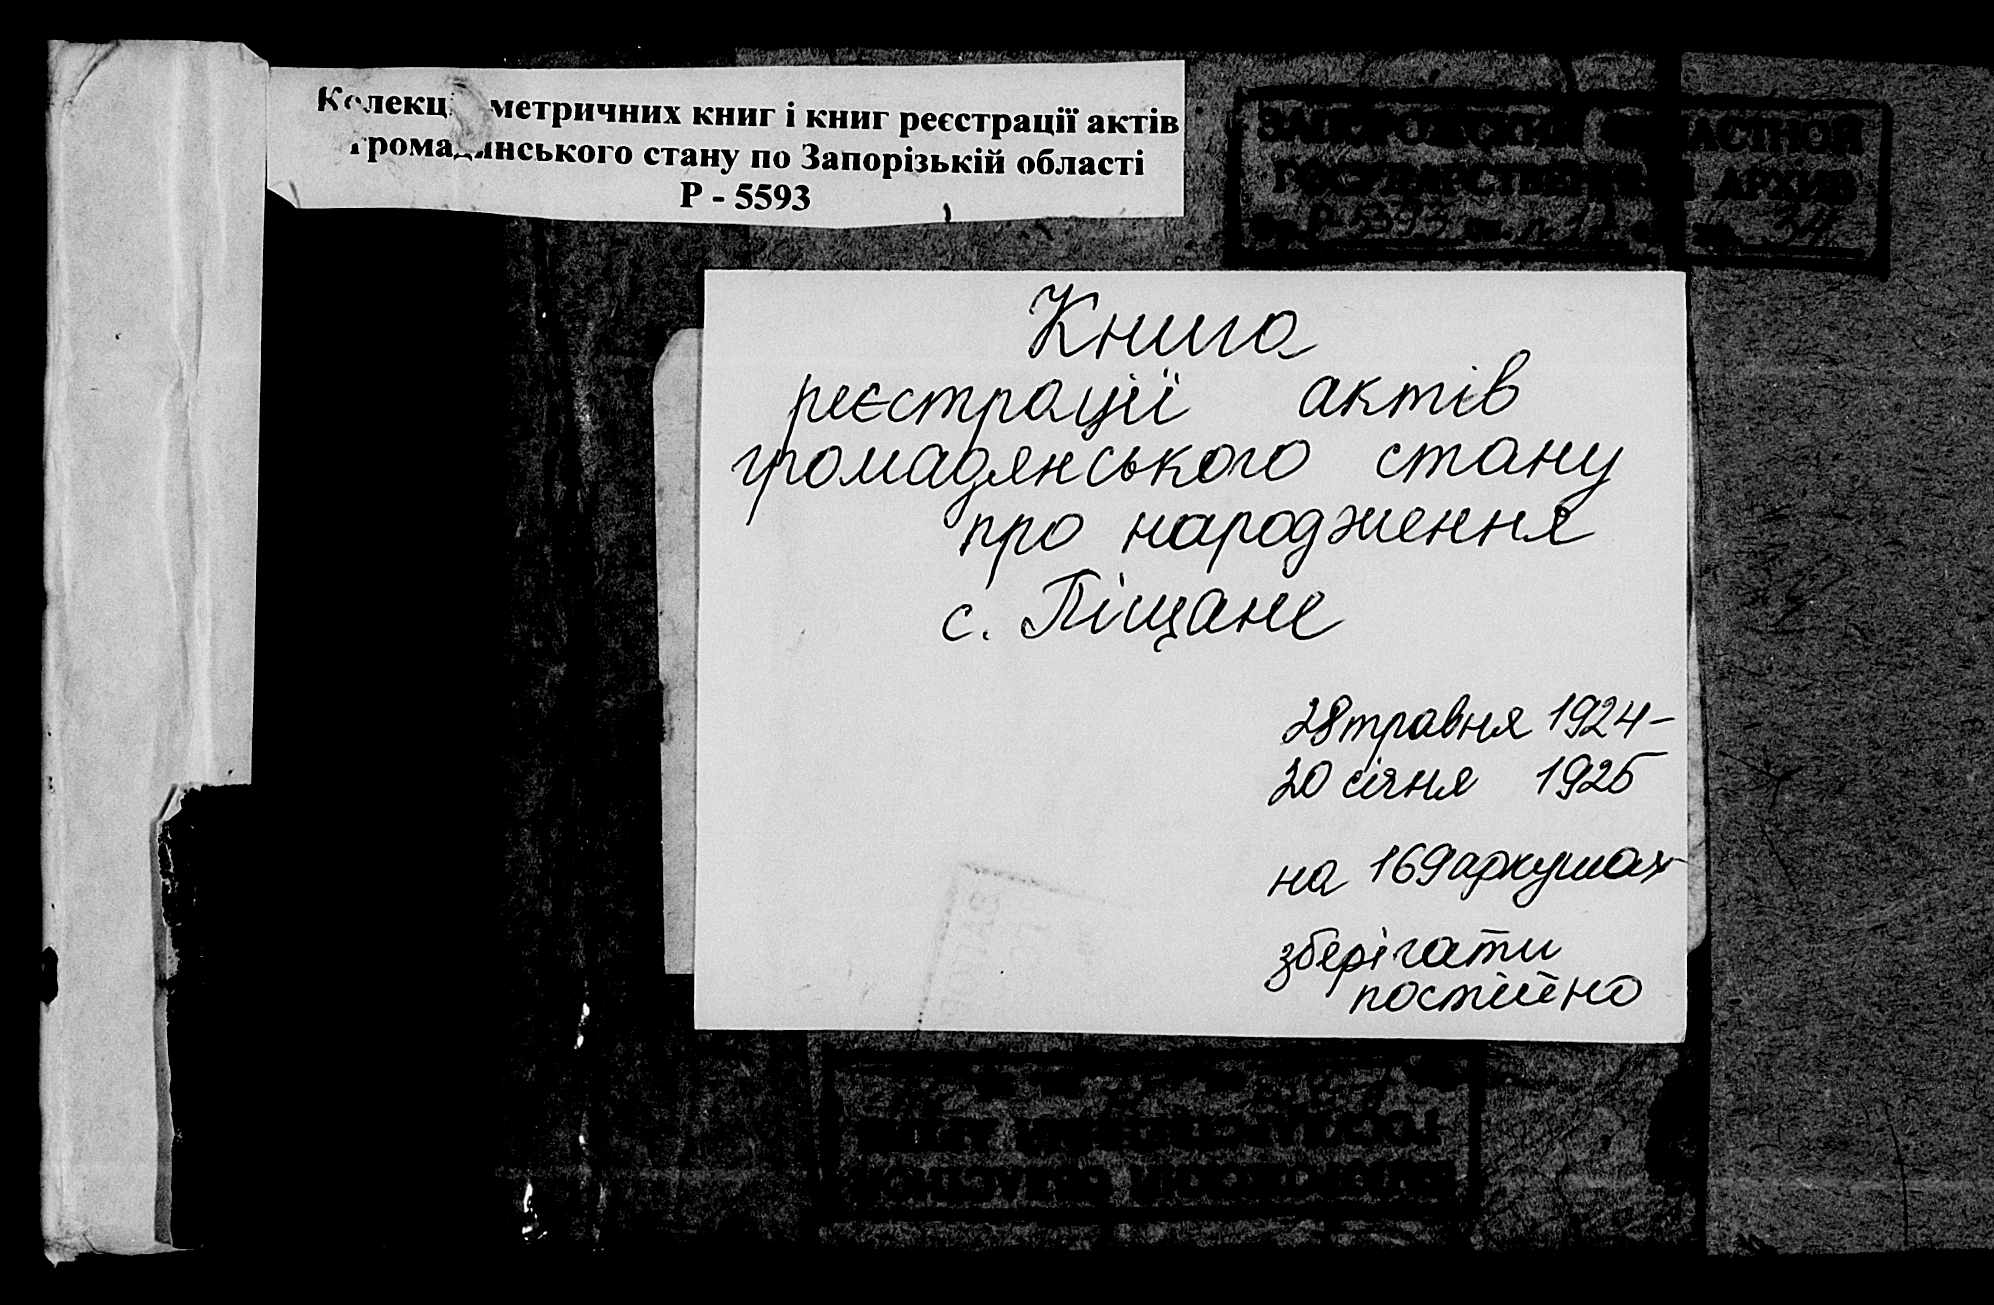 Колекція метричних книг і книг реєстрації актів
громадянського стану по Запорізькій області
Р - 5593
ЗАПОРОЖСКИЙ ОБЛАСТНОЙ
ГОСУДАРСТВЕННЫЙ АРХИВ
Р-5593 34
Книга
реєстрації актів
громадянського стану
про народження
с. Піщане
28 травня 1924 –
20 січня 1925
на 169 аркушах
зберігати
постійно